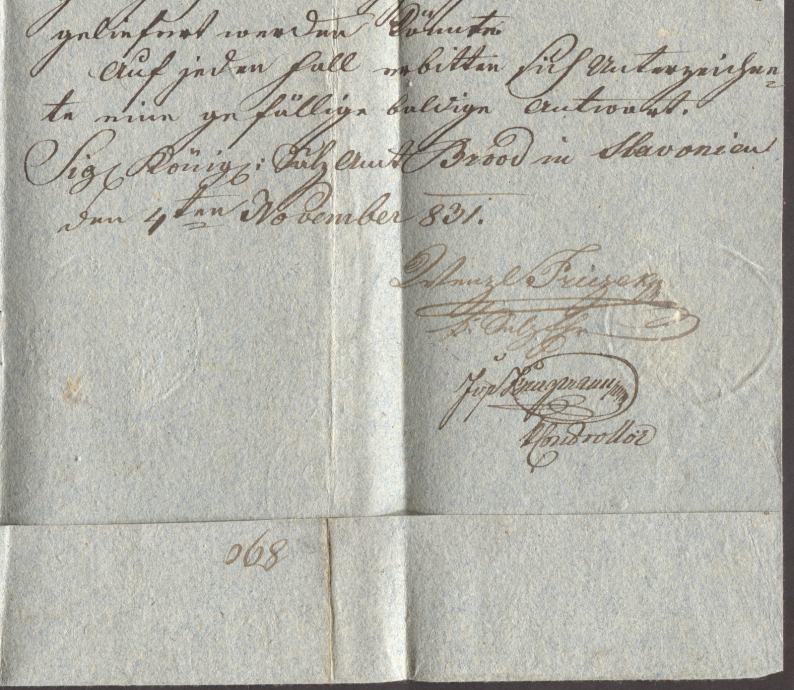 geliefert werden könnte
Auf jeden Fall erbitten sich Unterzeichne=
te eine gefällige baldige Antwort.
Sig. König: Salz Amt Brood in Slavonien
den 4ten November 831.
Wenzl
Kontrollor
068